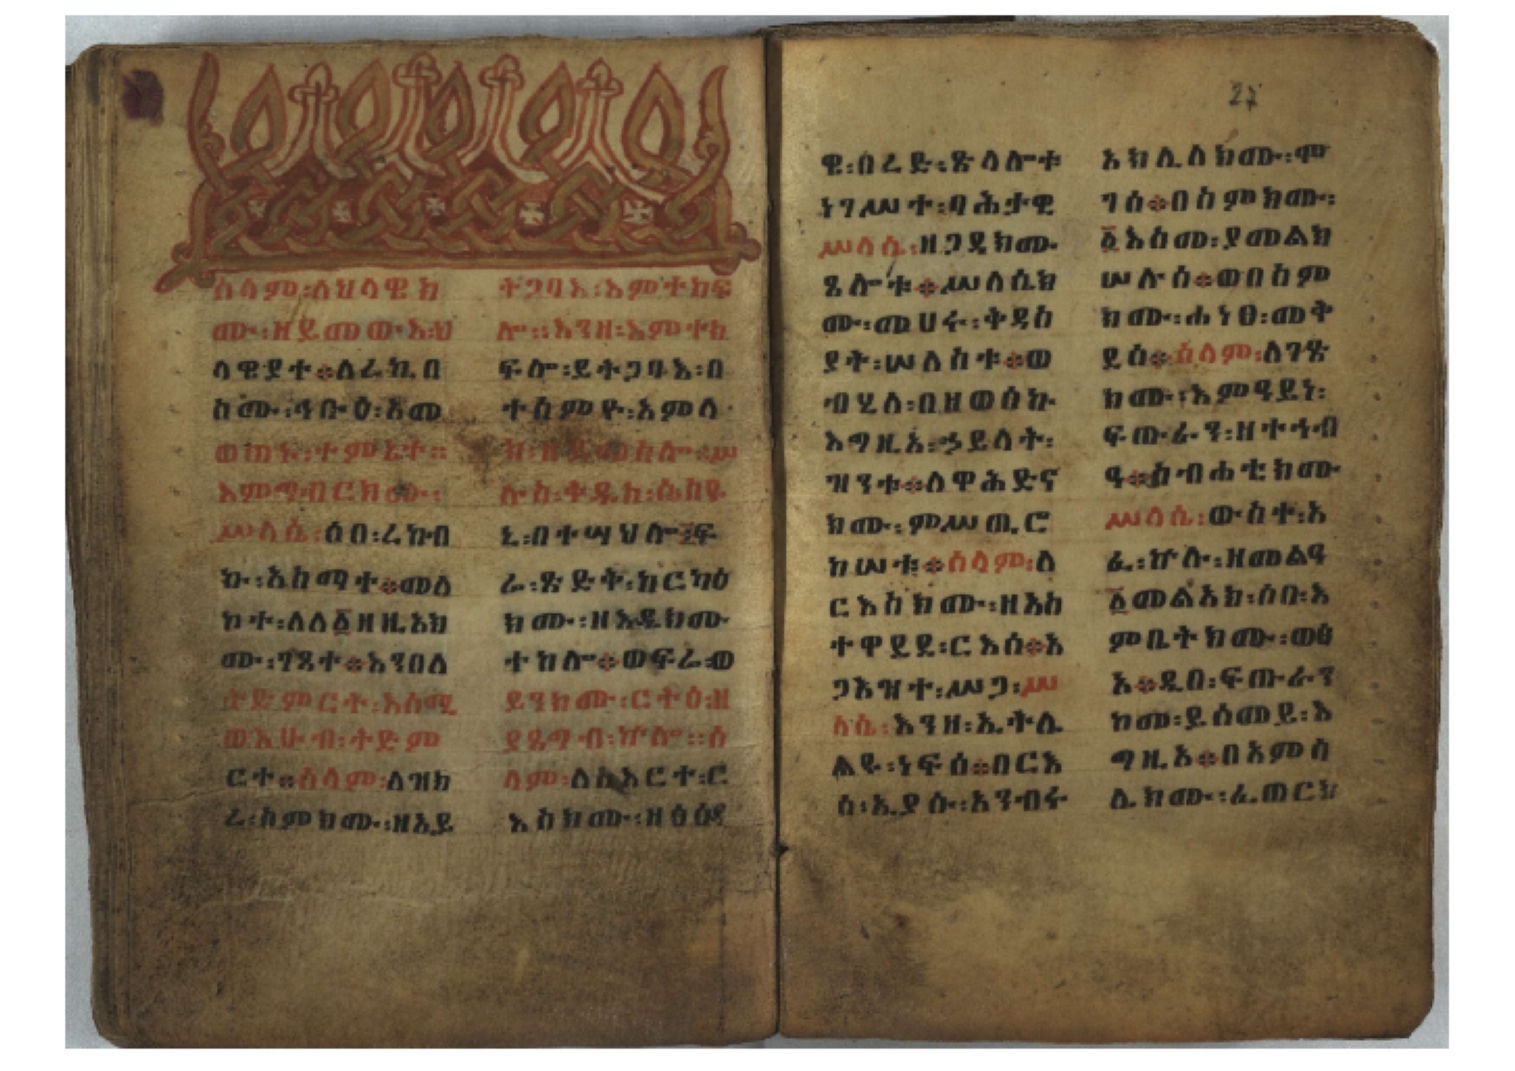 ሰላም፡ለህላዌክ
ሙ፡ዘይመውእ፡ህ
ላዌያተ።ለረኪበ
ስሙ፡ኅቡዕ፡እመ
ወጠኑ፡ተምኔተ።
እምግብርክሙ፡
ሥላሴ፡ሶበ፡ረኩበ
ኩ፡አስማተ።መለ
ኮተ፡ለለ፩ዘዚአክ
ሙ፡ገጸተ።እንበለ
ትድምርት፡እሰሚ
ወእሁብ፡ትድም
ርተ።ሰላም፡ለዝክ
ረ፡ስምክሙ፡ዘእይ
ትጋባእ፡እምተከፍ
ሎ።እንዘ፡እምተከ
ፍሎ፡ይትጋባእ፡በ
ተሰምዮ፡አምላ
ሉስ፡ቅዱስ፡
ኒ፡በተሣህሎ፡ፍ
ሬ፡ጽድቅ፡ከርካዕ
ክሙ፡ዘእዴክሙ
ተከሎ።ወፍሬ፡ወ
ይንክሙ፡ርትዕ፡ዘ
ያጼግብ፡ኵሎ።ሰ
ላም፡ለስእርተ፡ር
እስክሙ፡ዘዕዕዳ
ዌ፡በረድ፡ጽላሎቱ
ነገሥተ፡ባሕታዊ
ሥላሴ፡ዘጋዲክሙ
ጼሎቱ።ሥላሴክ
ሙ፡መሀሩ፡ቅዳስ
ያት፡ሠለስቱ።ወ
ብሂለ፡በዘወሰኩ
እግዚአ፡ኃይላት፡
ዝንቱ።ለዋሕድና
ክሙ፡ምሥጢሮ
ከሠቱ።ሰላም፡ለ
ርእስክሙ፡ዘእስ
ተዋየደ፡ርእሰ።አ
ጋእዝተ፡ሥጋ፡ሥ
ላሴ፡እንዘ፡ኢትሌ
ልዩ፡ነፍሰ።በርእ
ስ፡ኢያሱ፡አንብሩ
አክሊለክሙ፡ሞ
ገሰ።በስምክሙ፡
፩እስመ፡ያመልክ
ሠሉሰ።ወበስም
ክሙ፡ሐነፀ፡መቅ
ደሰ።ሰላም፡ለገጽ
ክሙ፡እምዓይነ፡
ፍጡራን፡ዘተኀብ
ዓ።ስብሐቲክሙ
ሥላሴ፡ውስተ፡አ
ፈ፡ኵሉ፡ዘመልዓ
፩መልአክ፡ሶበ፡እ
ምቤትክሙ፡ወፅ
አ።ዲበ፡ፍጡራን
ከመ፡ይሰመይ፡እ
ግዚአ።በአምሳ
ሊክሙ፡ፈጠርክ
27